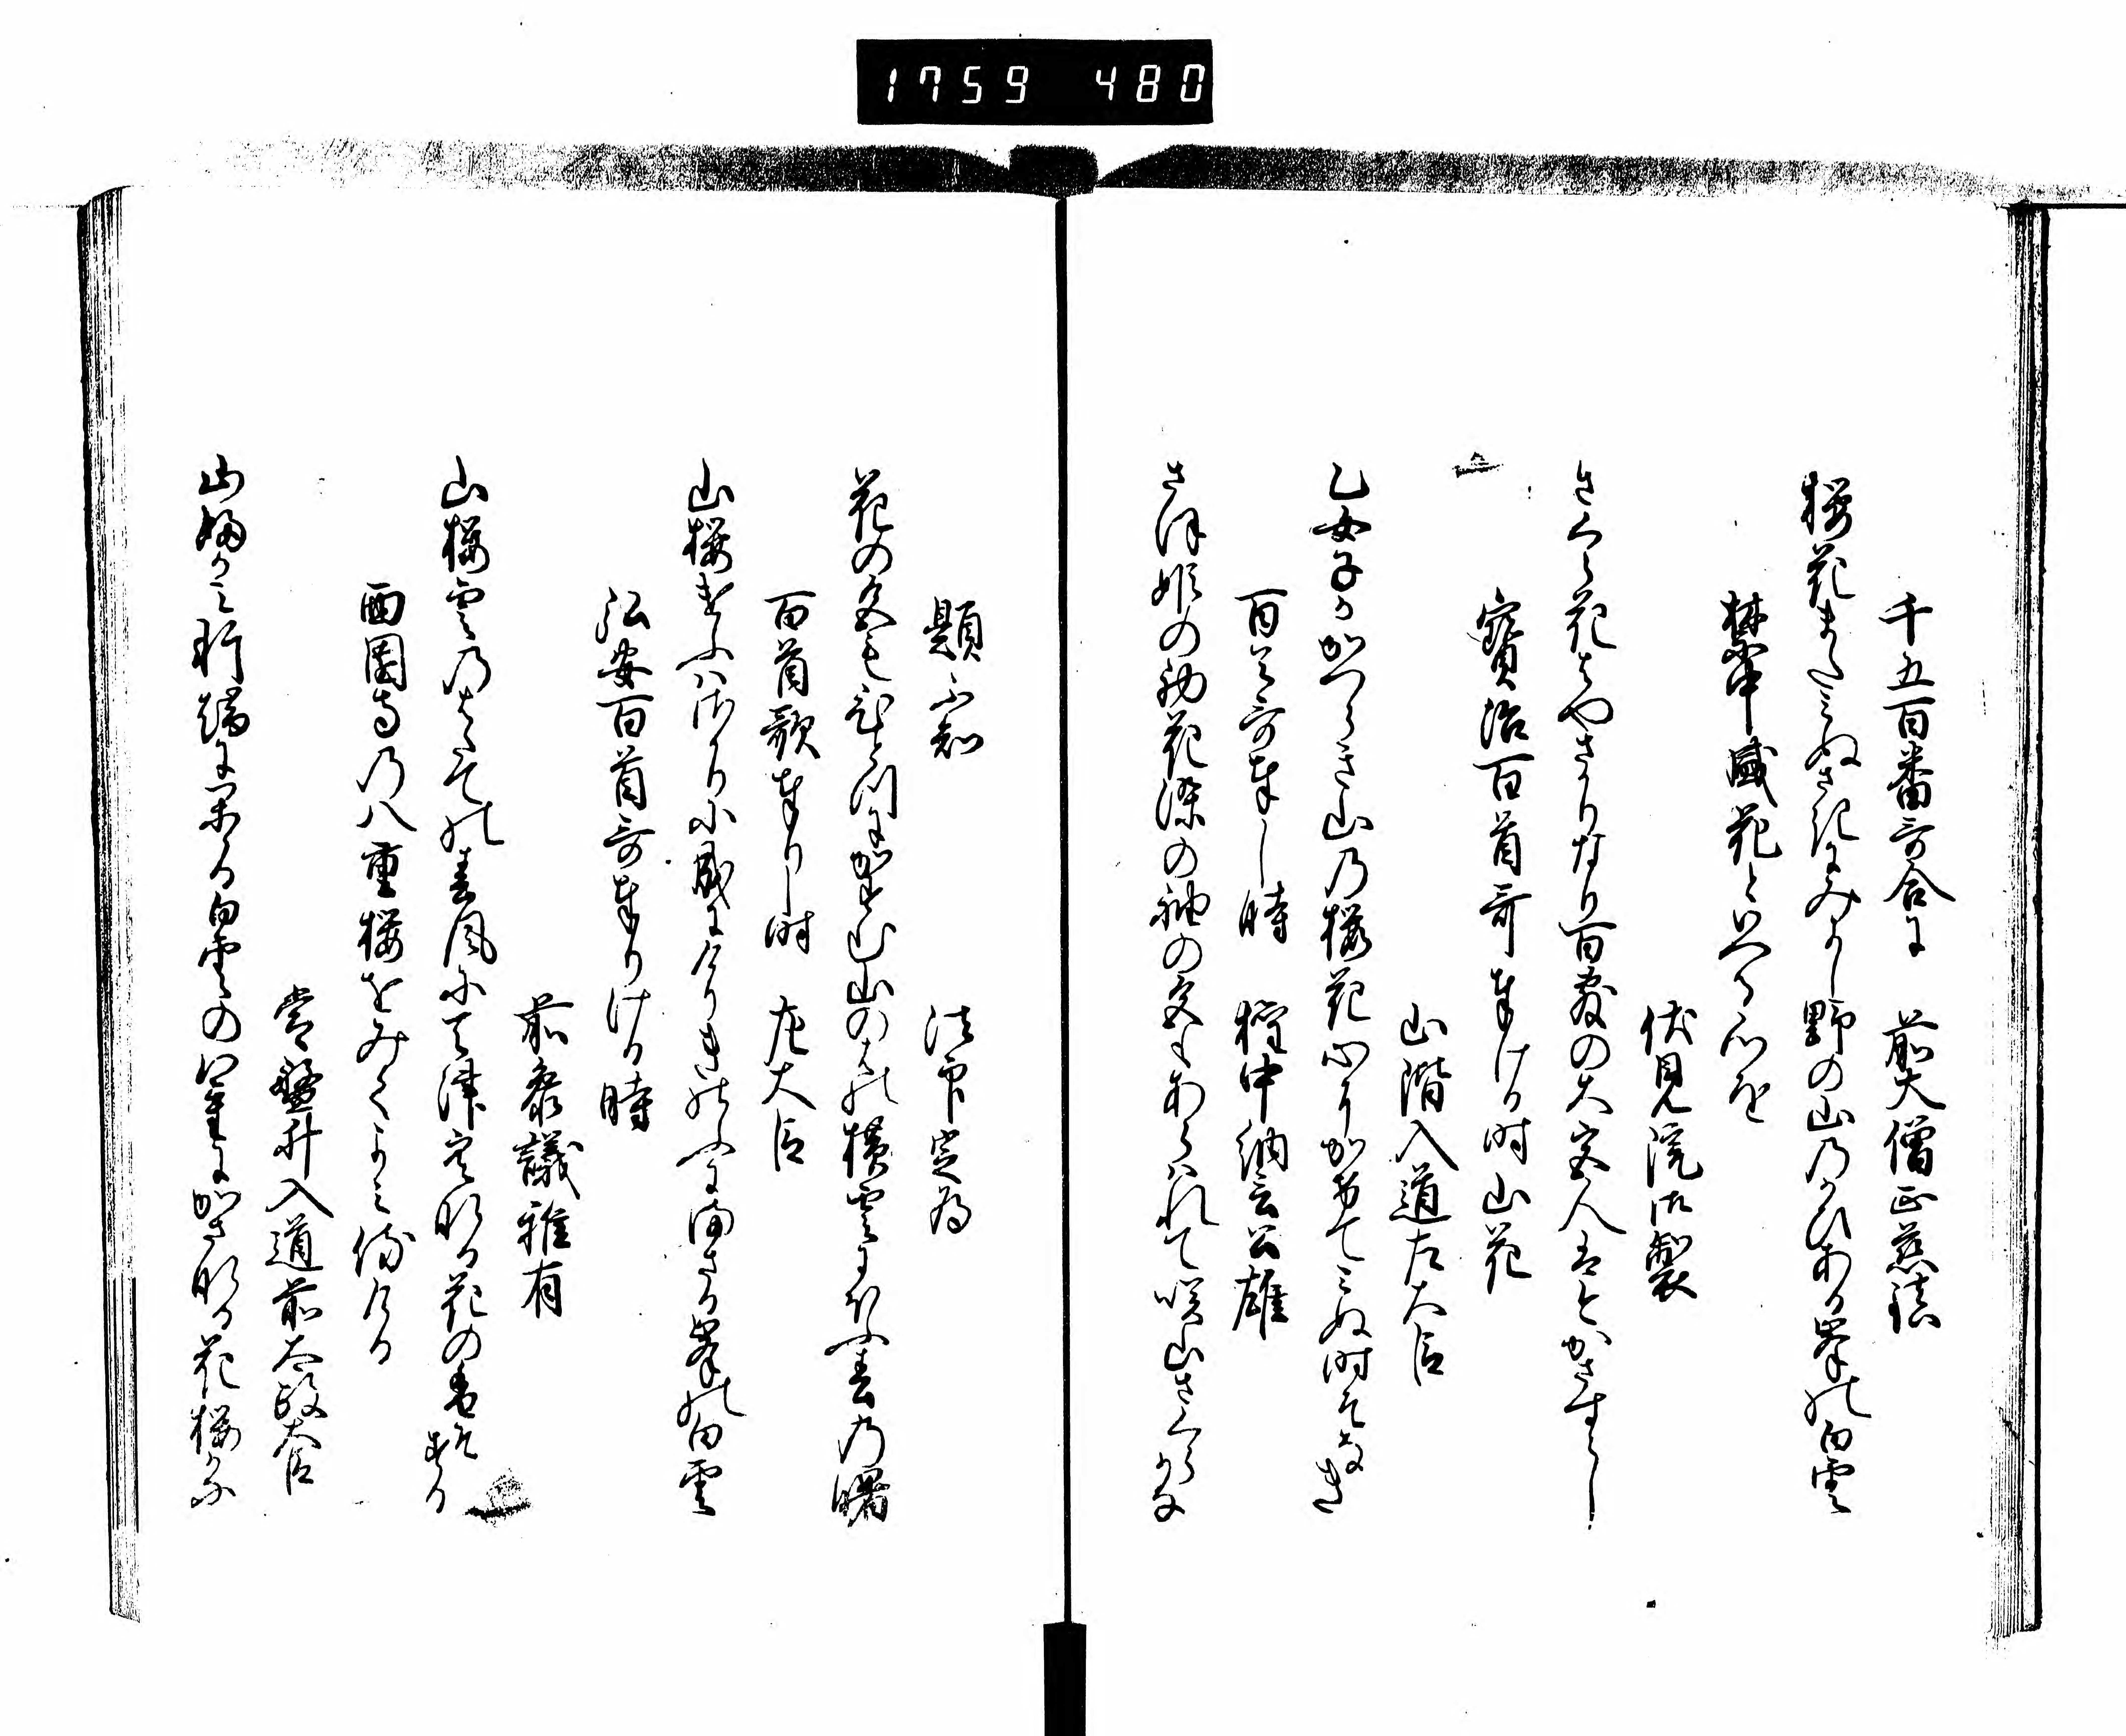 1759 480
千五百番哥合に　前大僧正慈鎮
桜花またみぬさきにみよし野の山のかひある峯の白雲
禁中盛花といへる心を
伏見院御製
さくら花はやさかりなり百敷の大宮人はかさすらし
宝治百首哥奉ける時山花
山階入道左大臣
乙女子かかつらき山の桜花かけてみぬ時そなき
百首哥奉し時　権中納言公雄
さほ姫の花染の袖の色もあらはれて咲山さくらかな
題不知　法印定為
花の色もにかすむ山のはの横雲にほふ春の曙
百首歌奉りし時　左大臣
山桜さかりに成にけりきのふにまさる峯の白雲
弘安百首哥奉りける時
前参議雅有
山桜雲のはたての春風にあまつ空なる花のそする
西園寺の八重桜をみてよみ侍ける
常盤井入道前太政大臣
山ちかき軒端にかゝる白雲の八重にかさなる花桜かな